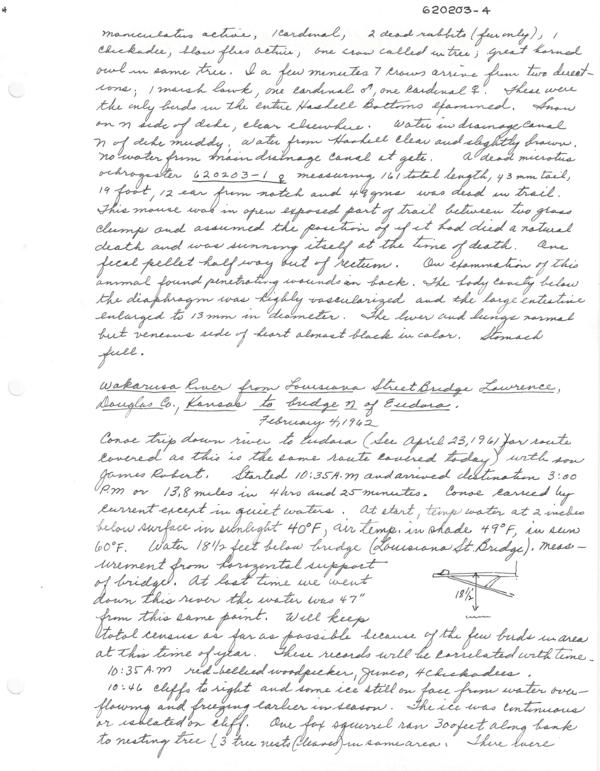 620203-4
maniculatus active, 1 cardinal, 2 dead rabbits (fur only), 1
chickadee, blow flies active, one crow called in tree; great horned
owl in same tree. In a few minutes 7 crows arrive from two direct-
ions; 1 marsh hawk, one cardinal ♂, one cardinal ♀. These were
the only birds in the entire Haskell Bottoms examined. Snow
on N side of dike, clear elsewhere. Water in drainage canal
N of dike muddy, water from Haskell clear and slightly brown.
no water from main drainage canal at gate. A dead microtus
ochrogaster 620203-1 ♀ measuring 161 total length, 43 mm tail,
19 foot, 12 ear from notch and 49 gms was dead in trail.
This mouse was in open exposed part of trail between two grass
clump and assumed the position of if it had died a natural
death and was sunning itself at the time of death. One
fecal pellet half way out of rectum. On examination of this
animal found penetrating wounds on back. The body cavity below
the diaphragm was highly vascularized and the large entestine
enlarged to 13 mm in diameter. The liver and lungs normal
but veneous side of heart almost black in color. Stomach
full.
Wakarusa River from Louisiana Street Bridge Lawrence,
Douglas Co., Kansas to bridge N of Eudora.
February 4, 1962
Conoe trip down river to Eudora (See April 23, 1961 for route
covered as this is the same route covered today) with son
James Robert. Started 10:35 A.M and arrived distination 3:00
P.M or 13.8 miles in 4 hrs and 25 minutes. Conoe carried by
current except in quiet waters. At start, temp water at 2 inches
below surface in sunlight 40°F, air temp. in shade 49°F, in sun
60°F. Water 18 1/2 feet below bridge (Louisiana St. Bridge). meas-
urement from horizontal support
of bridge. At last time we went
18 1/2
down this river the water was 47"
from this same point. Will keep
total census as far as possible because of the few birds in area
at this time of year. These records will be correlated with time.
10:35 A.M red-bellied woodpecker, Junco, 4 chickadees.
10:46 cliffs to right and some ice still on face from water over-
flowing and freezing earlier in season. The ice was continuous
or isolated on cliff. One fox squirrel ran 300 feet along bank
to nesting tree (3 tree nests (leaves) in same area. There were